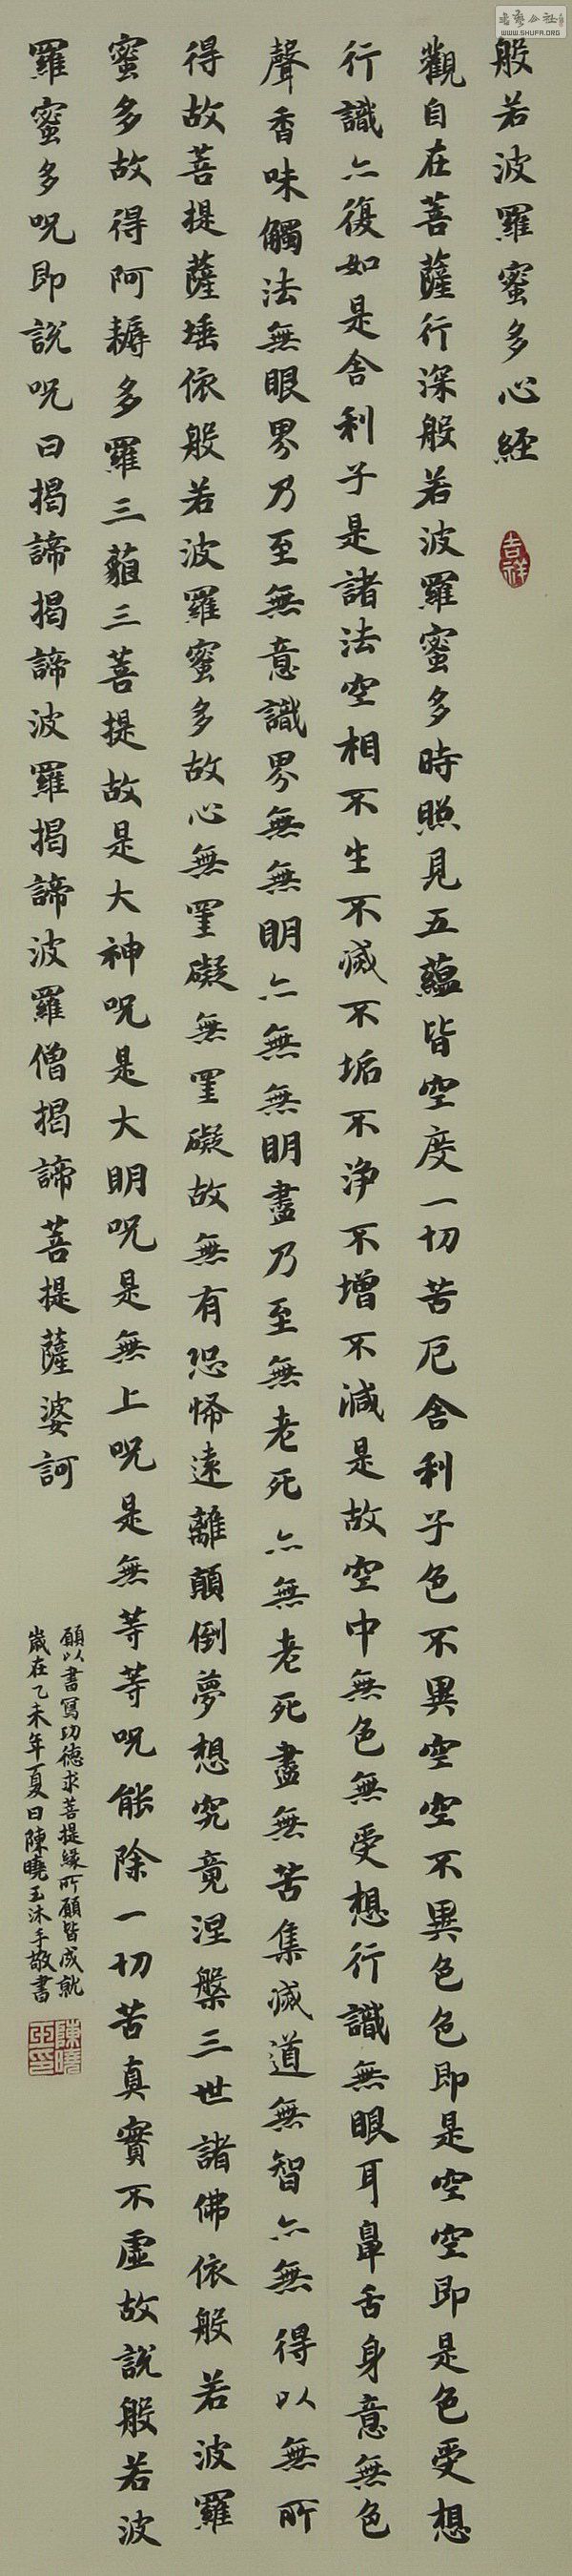 書藝公社
WWW.SHUFA.ORG
般若波羅蜜多心經
吉祥
觀自在菩薩行深般若波羅蜜多時照見五蘊皆空度一切苦厄舍利子色不異空空不異色色即是空空即是色受想
行識亦復如是舍利子是諸法空相不生不滅不垢不淨不增不減是故空中無色無受想行識無眼耳鼻舌身意無色
聲香味觸法無眼界乃至無意識界無無明亦無無明盡乃至無老死亦無老死盡無苦集滅道無智亦無得以無所
得故菩提薩埵依般若波羅蜜多故心無罣礙無罣礙故無有恐怖遠離顛倒夢想究竟涅槃三世諸佛依般若波羅
蜜多故得阿耨多羅三藐三菩提故是大神呪是大明呪是無上呪是無等等呪能除一切苦真實不虛故說般若波
羅蜜多呪即說呪曰揭諦揭諦波羅揭諦波羅僧揭諦菩提薩婆訶
願以書寫功德求菩提緣所願皆成就
歲在乙未年夏日陳曉玉沐手敬書
陳曉玉印